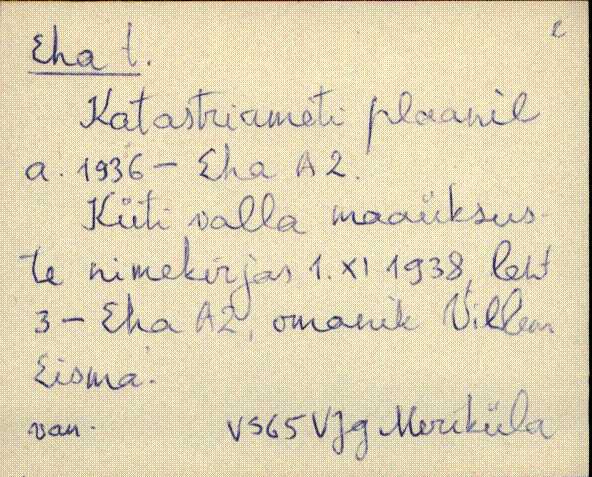 e
Eha t.
Katastriameti plaanil
a. 1936 - Eha A2.
Küti valla maaüksus-
te nimekirjas 1. XI 1938, leht
3 - Eha A2, omanik Villem
Eisma.
van. VS65 VJg Meriküla